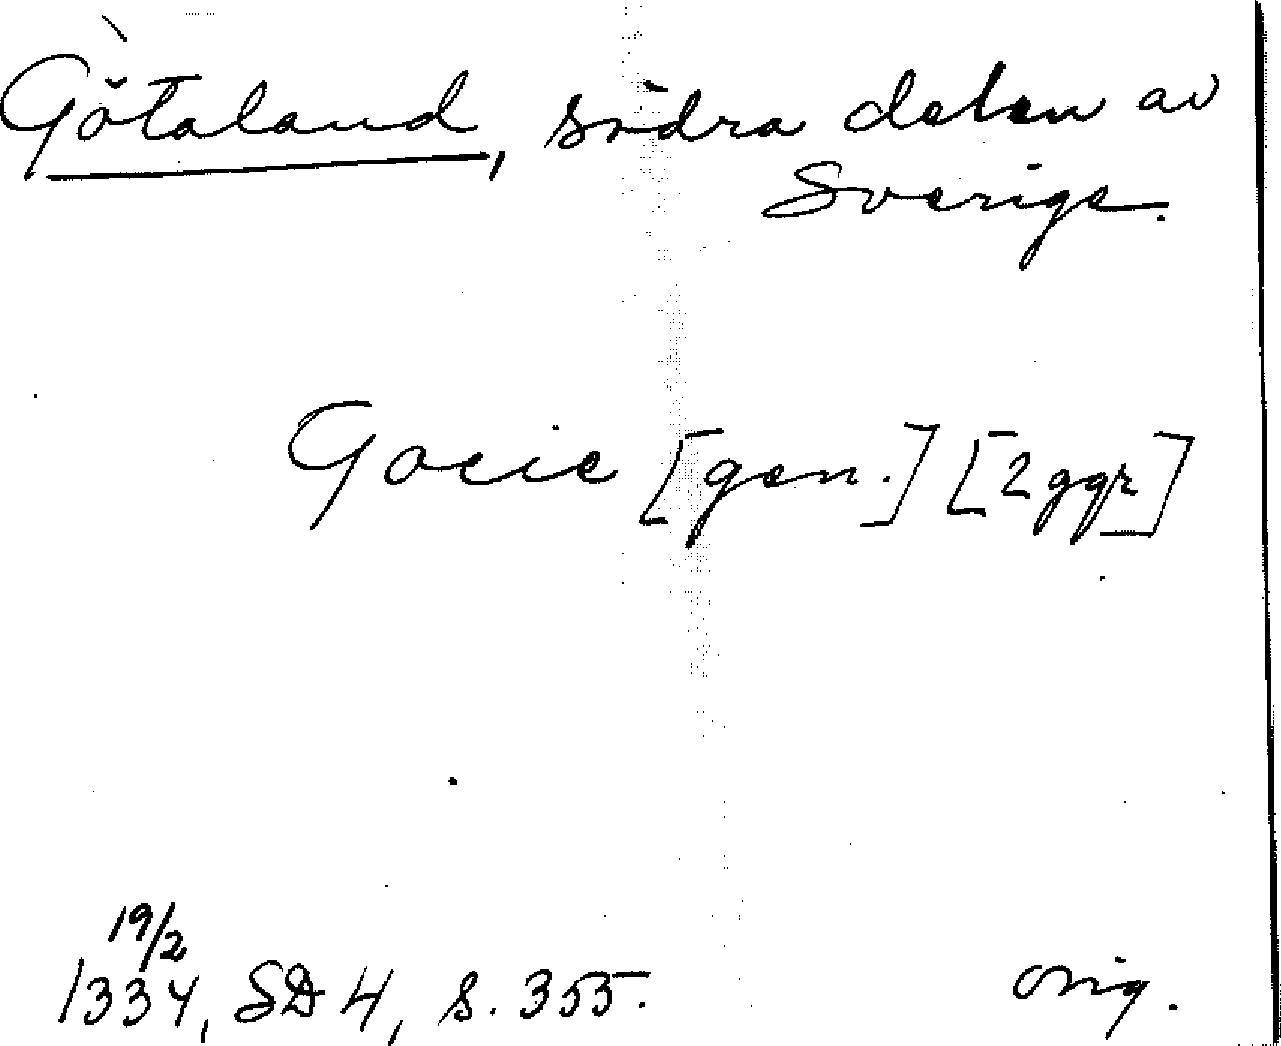 Götaland, södra delen av
Sverige.
Gocie [gen.] [2 ggr]
19/2
1334, SD 4, s. 355.
orig.